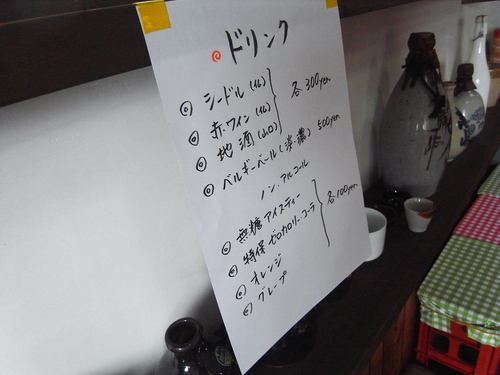 ドリンク
◎ シードル(仏)
◎ 赤ワイン(仏)
◎ 地酒(山口)
各300yen
◎ ベルギービール(淡・濃) 500yen
ノンアルコール
◎ 無糖アイスティー
◎ 特保ゼロカロリーコーラ
◎ オレンジ
◎ グレープ
各100yen